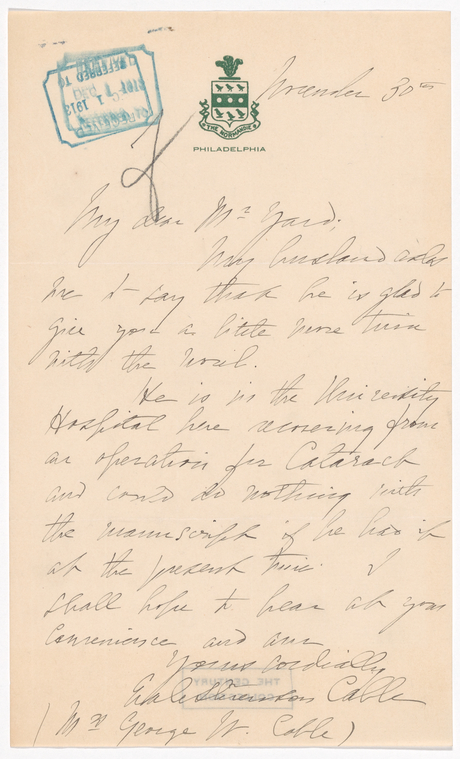 DEC 1 1913
REFERRED TO
November 30th
THE NORMANDIE
PHILADELPHIA
My dear Mr Yard;
My husband asks
me to say that he is glad to
give you a little more time
with the novel.
He is in the University
Hospital here recovering from
an operation for Cataract
and could do nothing with
the manuscript if he had it
at the present time. I
shall hope to hear at your
convenience and am
Yours cordially
THE CENTURY
Eva Stevenson Cable
(Mrs George W. Cable)